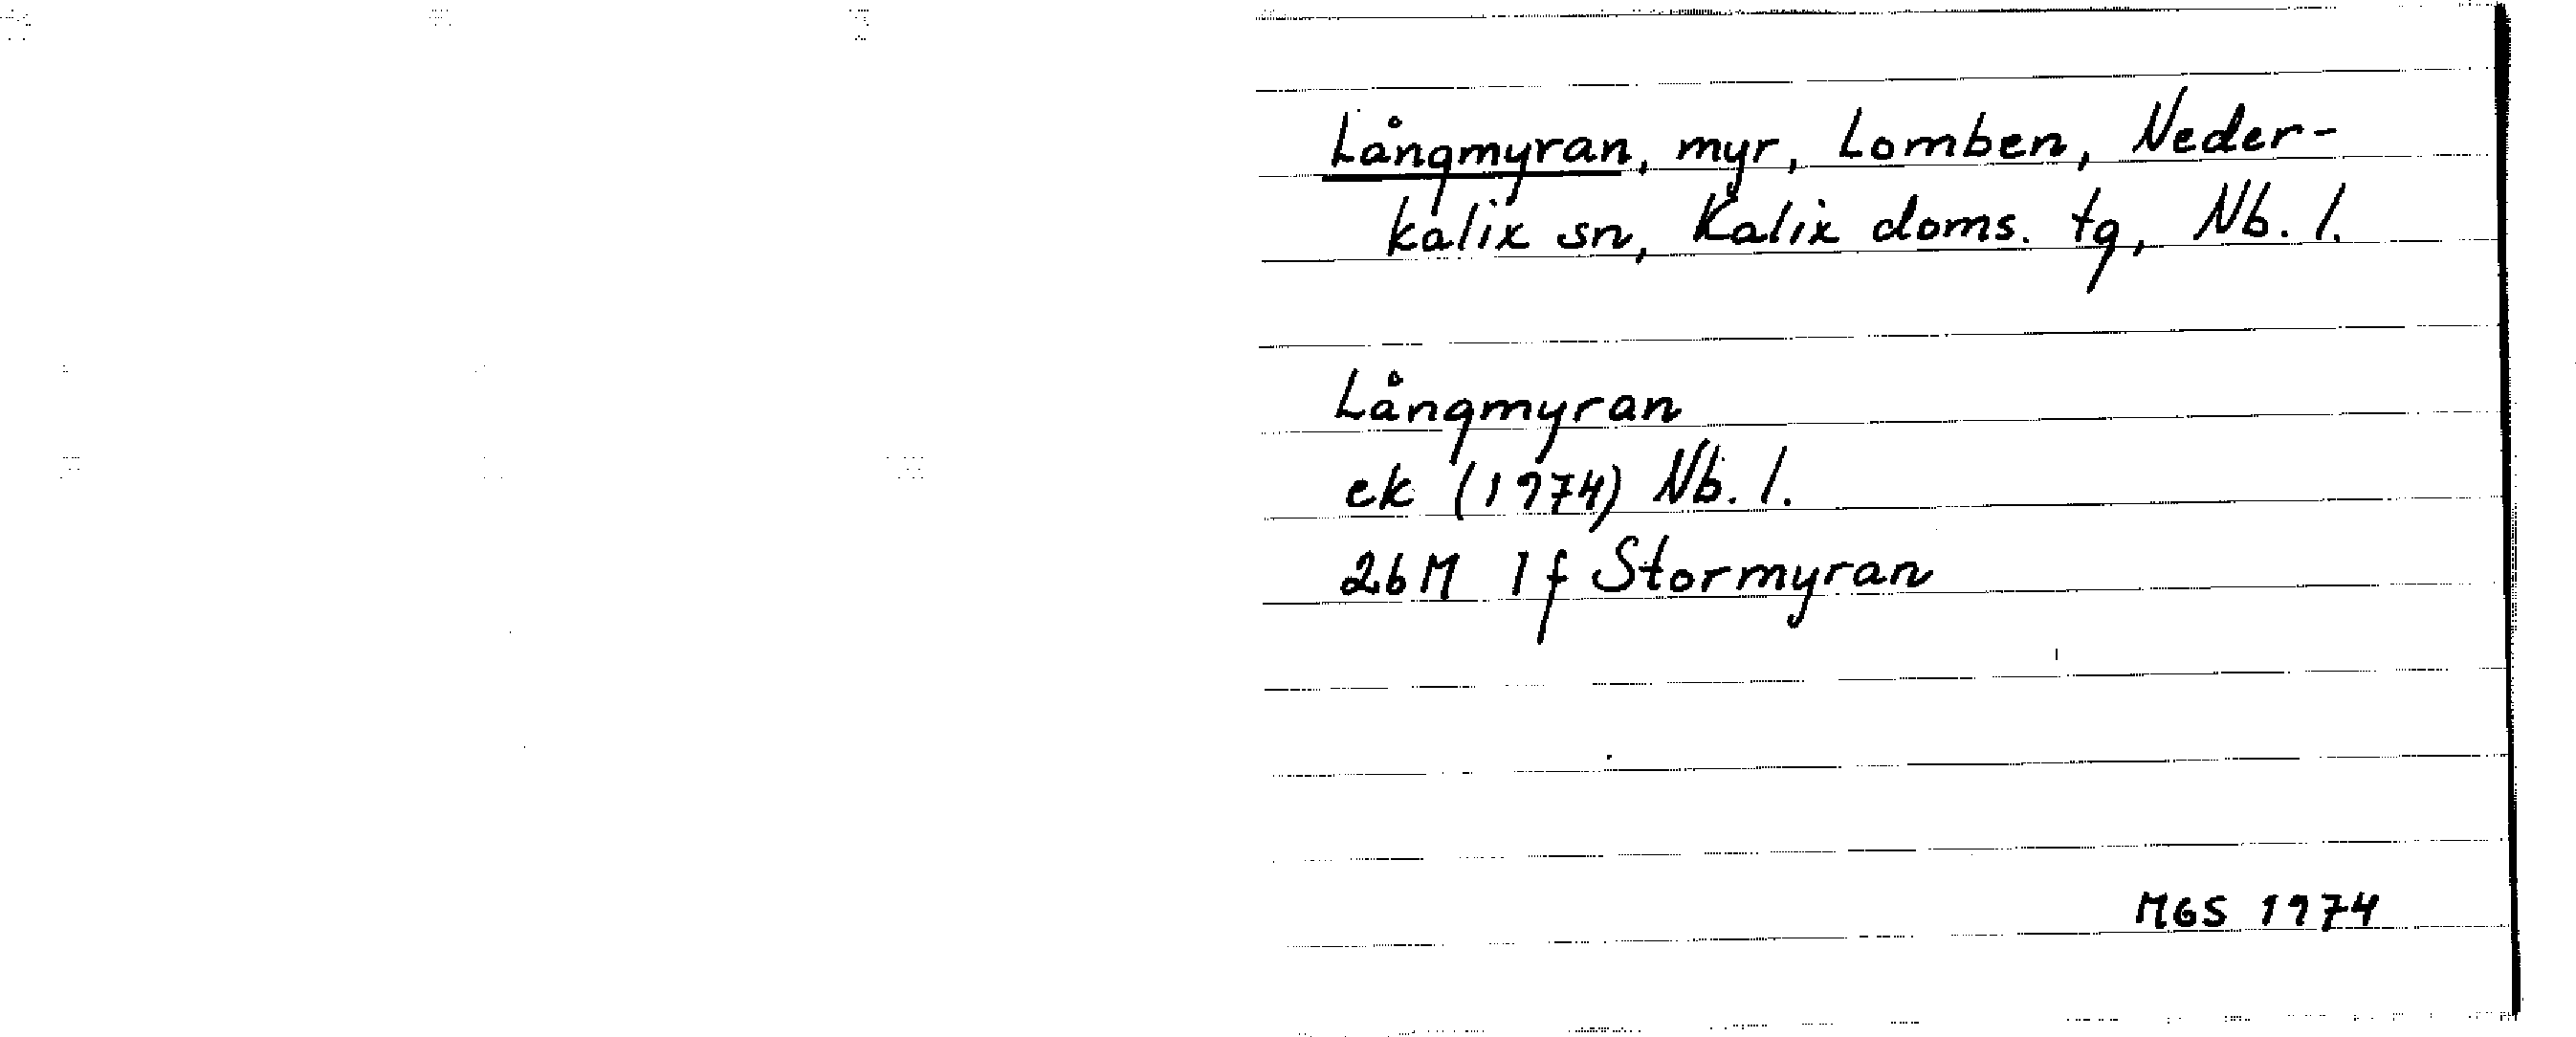 Långmyran, myr, Lomben, Neder-
kalix sn, Kalix doms. tg, Nb. l.
Långmyran
ek (1974) Nb. l.
26M 1f Stormyran
MGS 1974